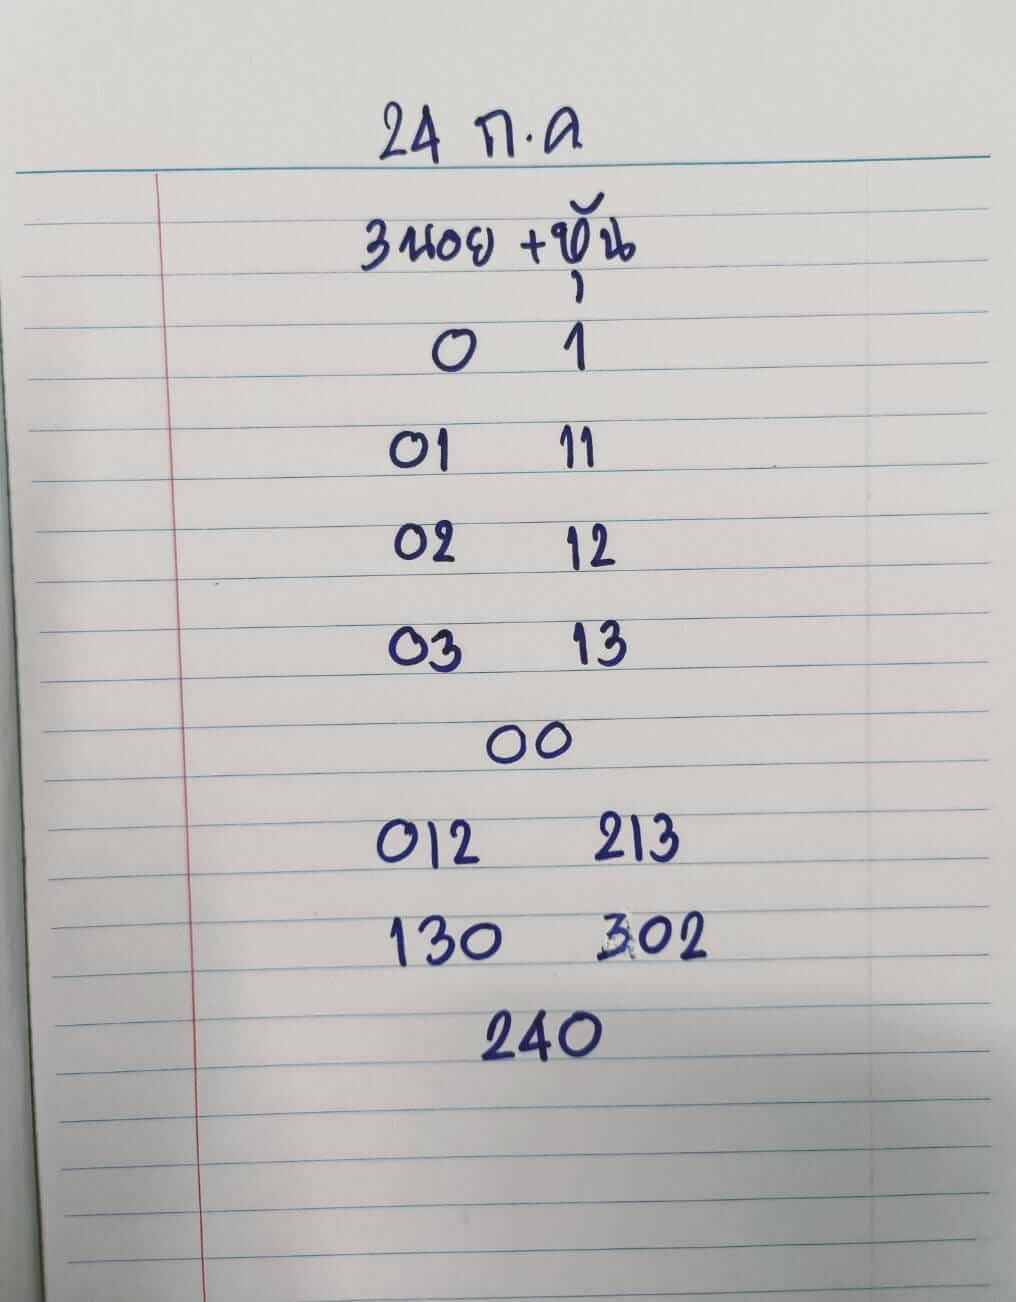 24 ก.ค
3 นอย + หุ้น
0 1
01 11
02 12
03 13
00
012 213
130 302
240